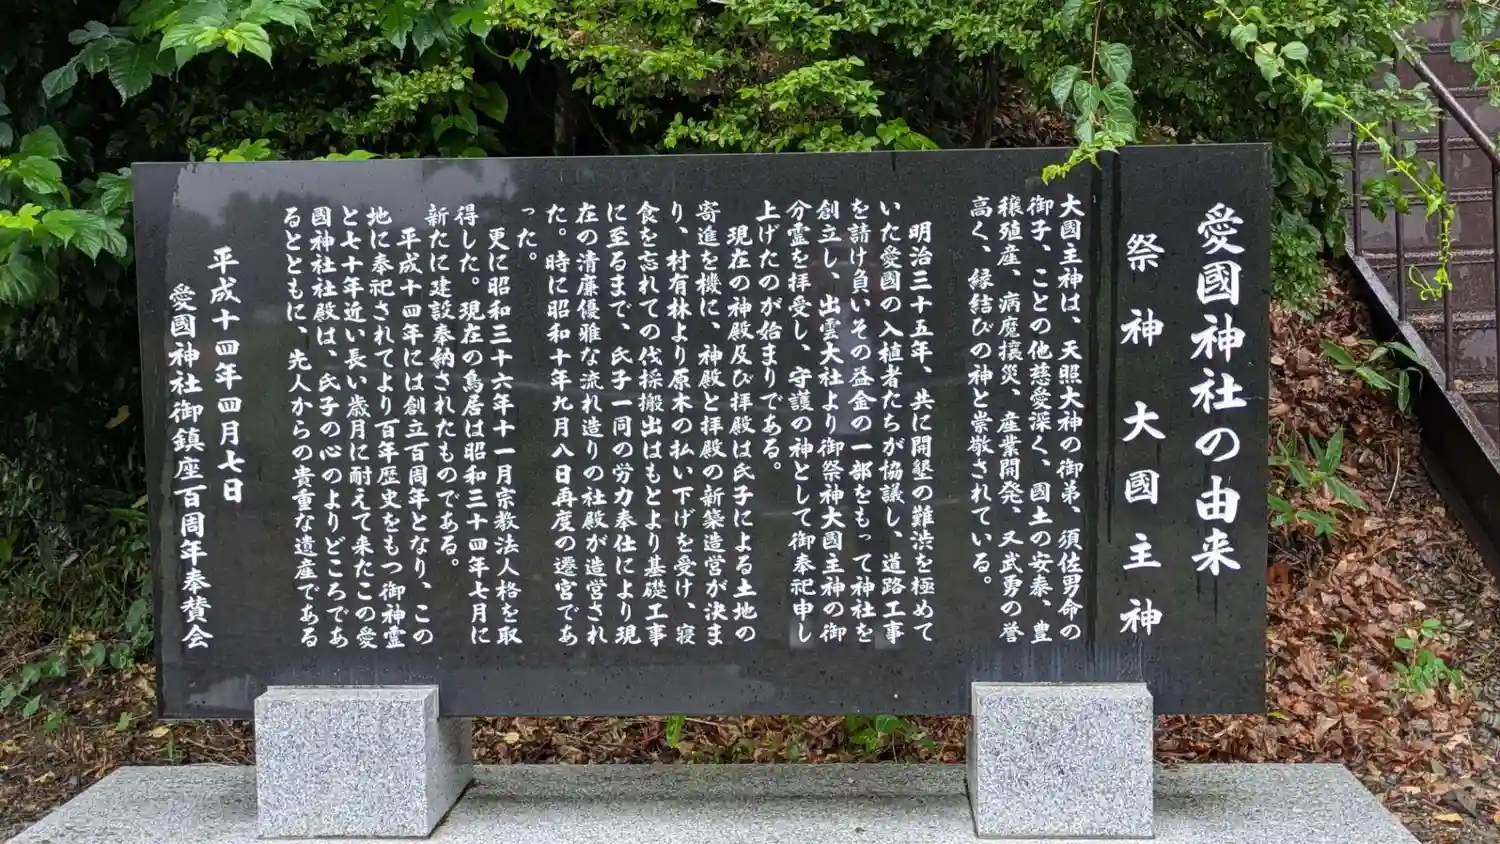 愛國神社の由来
祭神 大國主神
大國主神は、天照大神の御弟、須佐男命の
御子、ことの他慈愛深く、國土の安泰、豊
穣殖産、病魔攘災、産業開発、又武勇の誉
高く、縁結びの神と崇敬されている。
明治三十五年、共に開墾の難渋を極めて
いた愛國の入植者たちが協議し、道路工事
を請け負いその益金の一部をもって神社を
創立し、出雲大社より御祭神大國主神の御
分霊を拝受し、守護の神として御奉祀申し
上げたのが始まりである。
現在の神殿及び拝殿は氏子による土地の
寄進を機に、神殿と拝殿の新築造営が決ま
り、村有林より原木の払い下げを受け、寝
食を忘れての伐採搬出はもとより基礎工事
に至るまで、氏子一同の労力奉仕により現
在の清廉優雅な流れ造りの社殿が造営され
た。時に昭和十年九月八日再度の遷宮であ
った。
更に昭和三十六年十一月宗教法人格を取
得した。現在の鳥居は昭和三十四年七月に
新たに建設奉納されたものである。
平成十四年には創立百周年となり、この
地に奉祀されてより百年歴史をもつ御神霊
と七十年近い長い歳月に耐えて来たこの愛
國神社社殿は、氏子の心のよりどころであ
るとともに、先人からの貴重な遺産である
平成十四年四月七日
愛國神社御鎮座百周年奉賛会